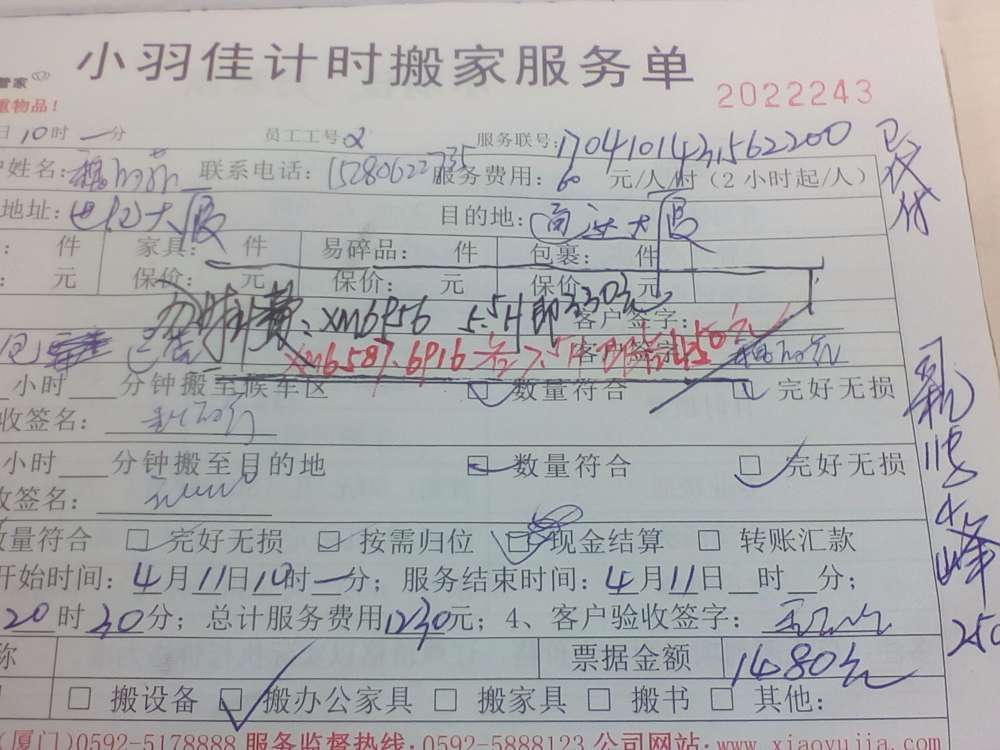 小羽佳计时搬家服务单
管家
重物品！
2022243
日10时一分 员工工号2 服务联号:17041014231562200
姓名: 联系电话:15280622735 服务费用:60元/人/时（2小时起/人）
地址: 大厦 目的地: 大厦
: 件 家具: 件 易碎品: 件 包裹: 件
: 元 保价: 元 保价: 元 保价: 元
xm6956 5.5H即330元 客户签字:
xm6587.6916 客户签字
小时 分钟搬至候车区 数量符合 完好无损
收签名:
小时 分钟搬至目的地 数量符合 完好无损
收签名:
数量符合 完好无损 按需归位 现金结算 转账汇款
开始时间:4月11日10时一分；服务结束时间:4月11日 时 分；
20时30分；总计服务费用1230元；4、客户验收签字:
称 票据金额 1480元
搬设备 搬办公家具 搬家具 搬书 其他:
(厦门)0592-5178888 服务监督热线:0592-5888123 公司网站:www.xiaoyujia.com
已支付
250